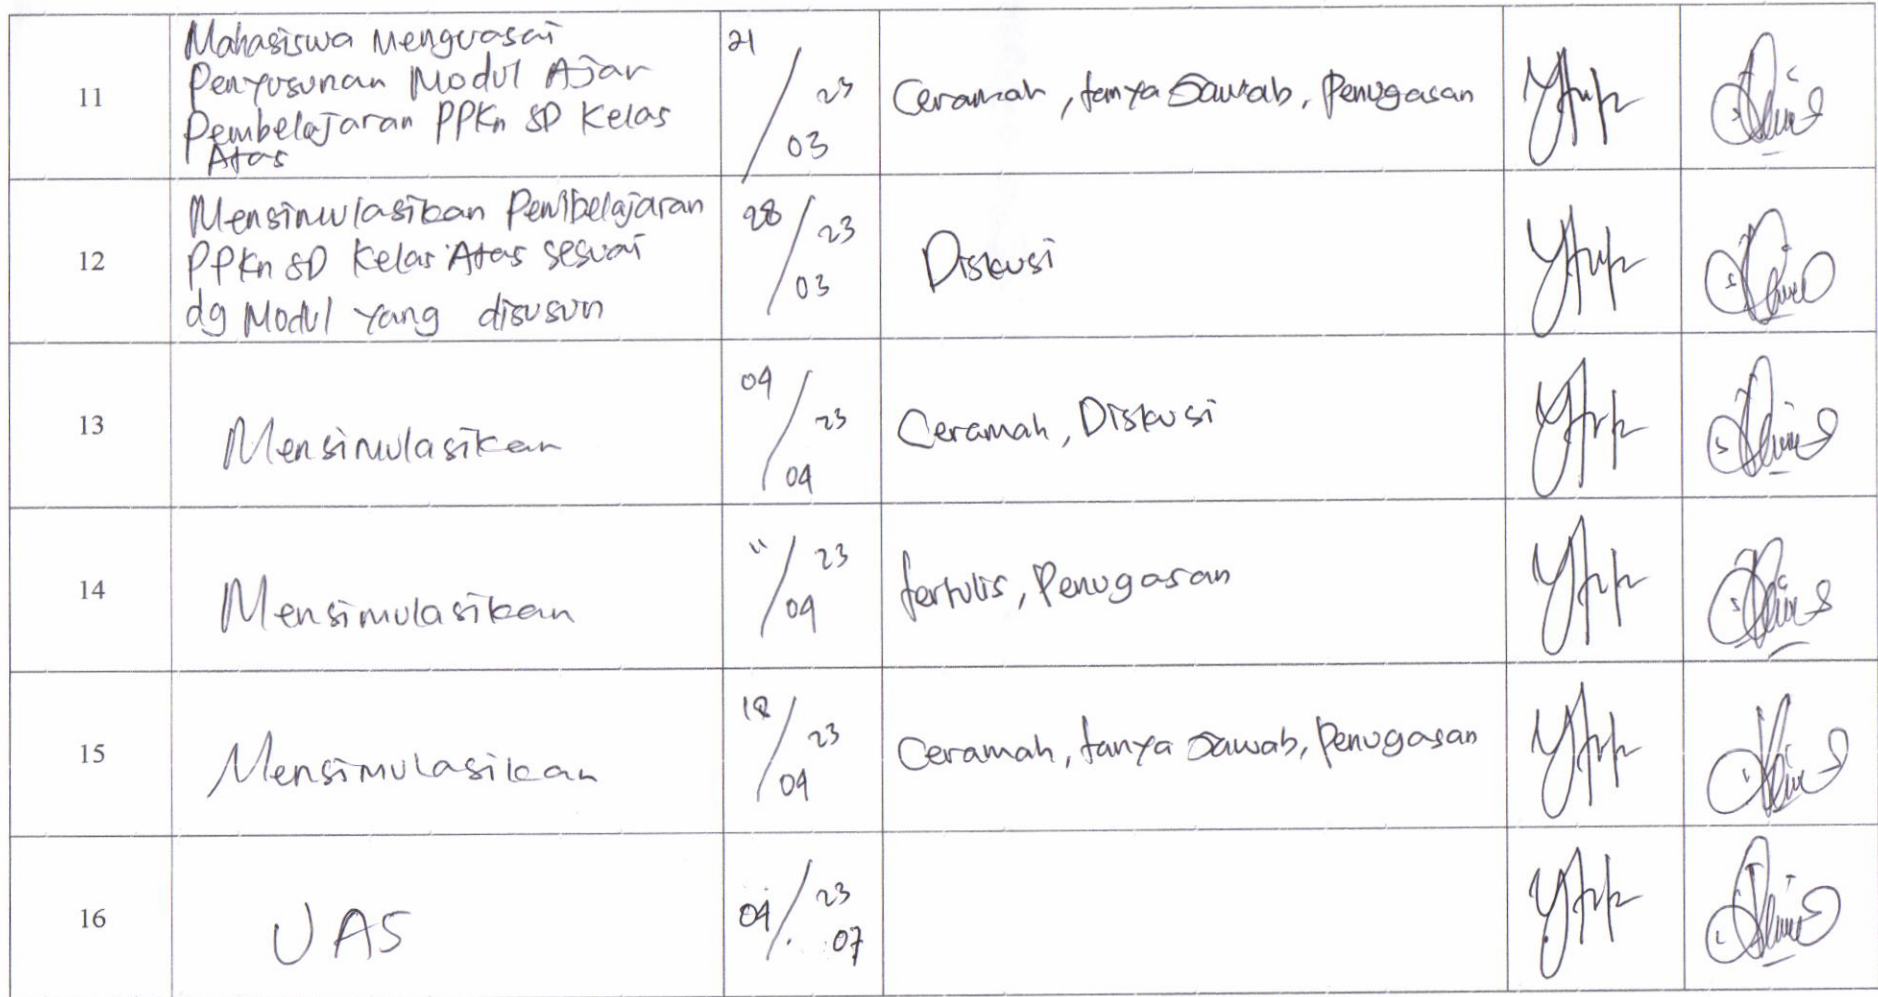 11
Mahasiswa Menguasai
Penyusunan Modul Ajar
Pembelajaran PPKn SD Kelas
Atas
21/03 23
Ceramah, tanya Jawab, Penugasan
12
Mensimulasikan Pembelajaran
PPKn SD Kelas Atas sesuai
dg Modul yang disusun
28/03 23
Diskusi
13
Mensimulasikan
04/04 23
Ceramah, Diskusi
14
Mensimulasikan
11/04 23
tertulis, Penugasan
15
Mensimulasikan
18/04 23
Ceramah, tanya Jawab, Penugasan
16
UAS
04/07 23